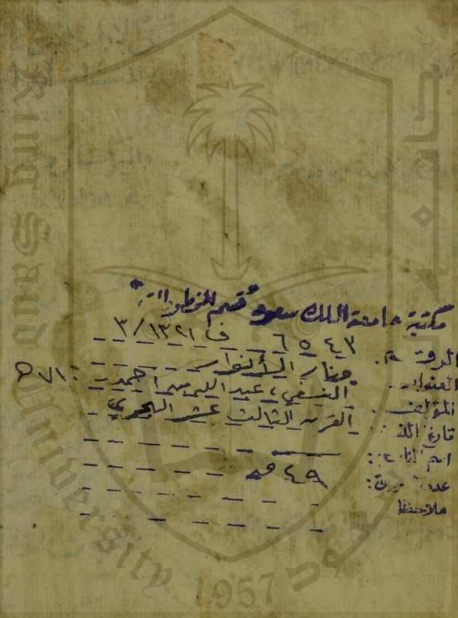 مكتبة جامعة الملك سعود "قسم المخطوطات"
الرقم: ٦٥٤٣ ف ١٣٢١/٣
العنوان: منار الأنوار
المؤلف: النسفي، عبد الله بن أحمد - ٧١٠ هـ
تاريخ النسخ: القرن الثالث عشر الهجري
اسم الناسخ:
عدد الأوراق: ٤٩ ق
ملاحظات
King Saud University
1957